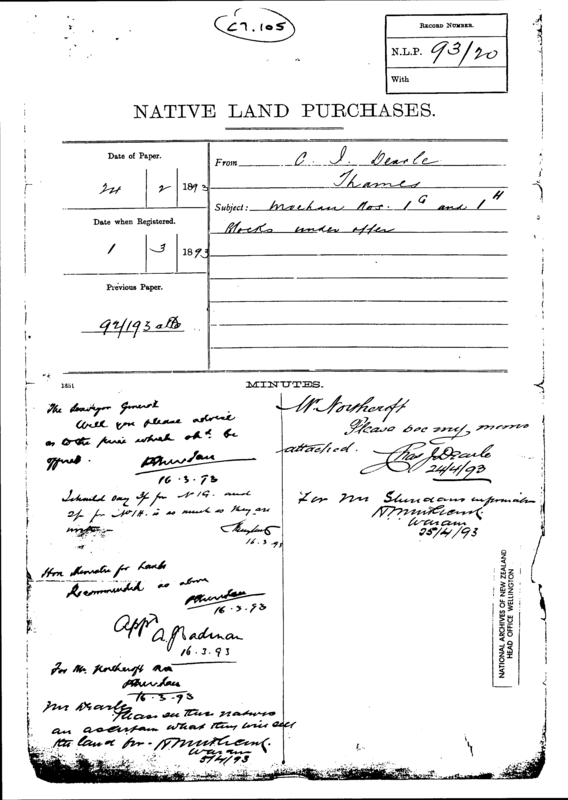 C7.105
RECORD NUMBER.
N.L.P. 93/20
With
NATIVE LAND PURCHASES.
Date of Paper.
24 2 1893
Date when Registered.
1 3 1893
Previous Paper.
92/193
From C. J. Dearle
Thames
Subject: Moehau Nos. 1G and 1H
Blocks under offer
1851
MINUTES.
The Surveyor General
Will you please advise
as to the price which shd. be
offered.
P Sheridan
16.3.93
I should say 3/- for No 1G. and
2/- for No 1H. is as much as they are
worth
16.3.93
Hon Minister for Lands
Recommended as above
P Sheridan
16.3.93
Appd
A. J. Cadman
16.3.93
For Mr. Northcroft
P Sheridan
16-3-93
Mr Dearle
Please see these natives
an ascertain what they will sell
the land for.
5/4/93
Mr Northcroft
Please see my memo
attached.
Chas J. Dearle
24/4/93
For Mr Sheridans information
25/4/93
NATIONAL ARCHIVES OF NEW ZEALAND
HEAD OFFICE WELLINGTON